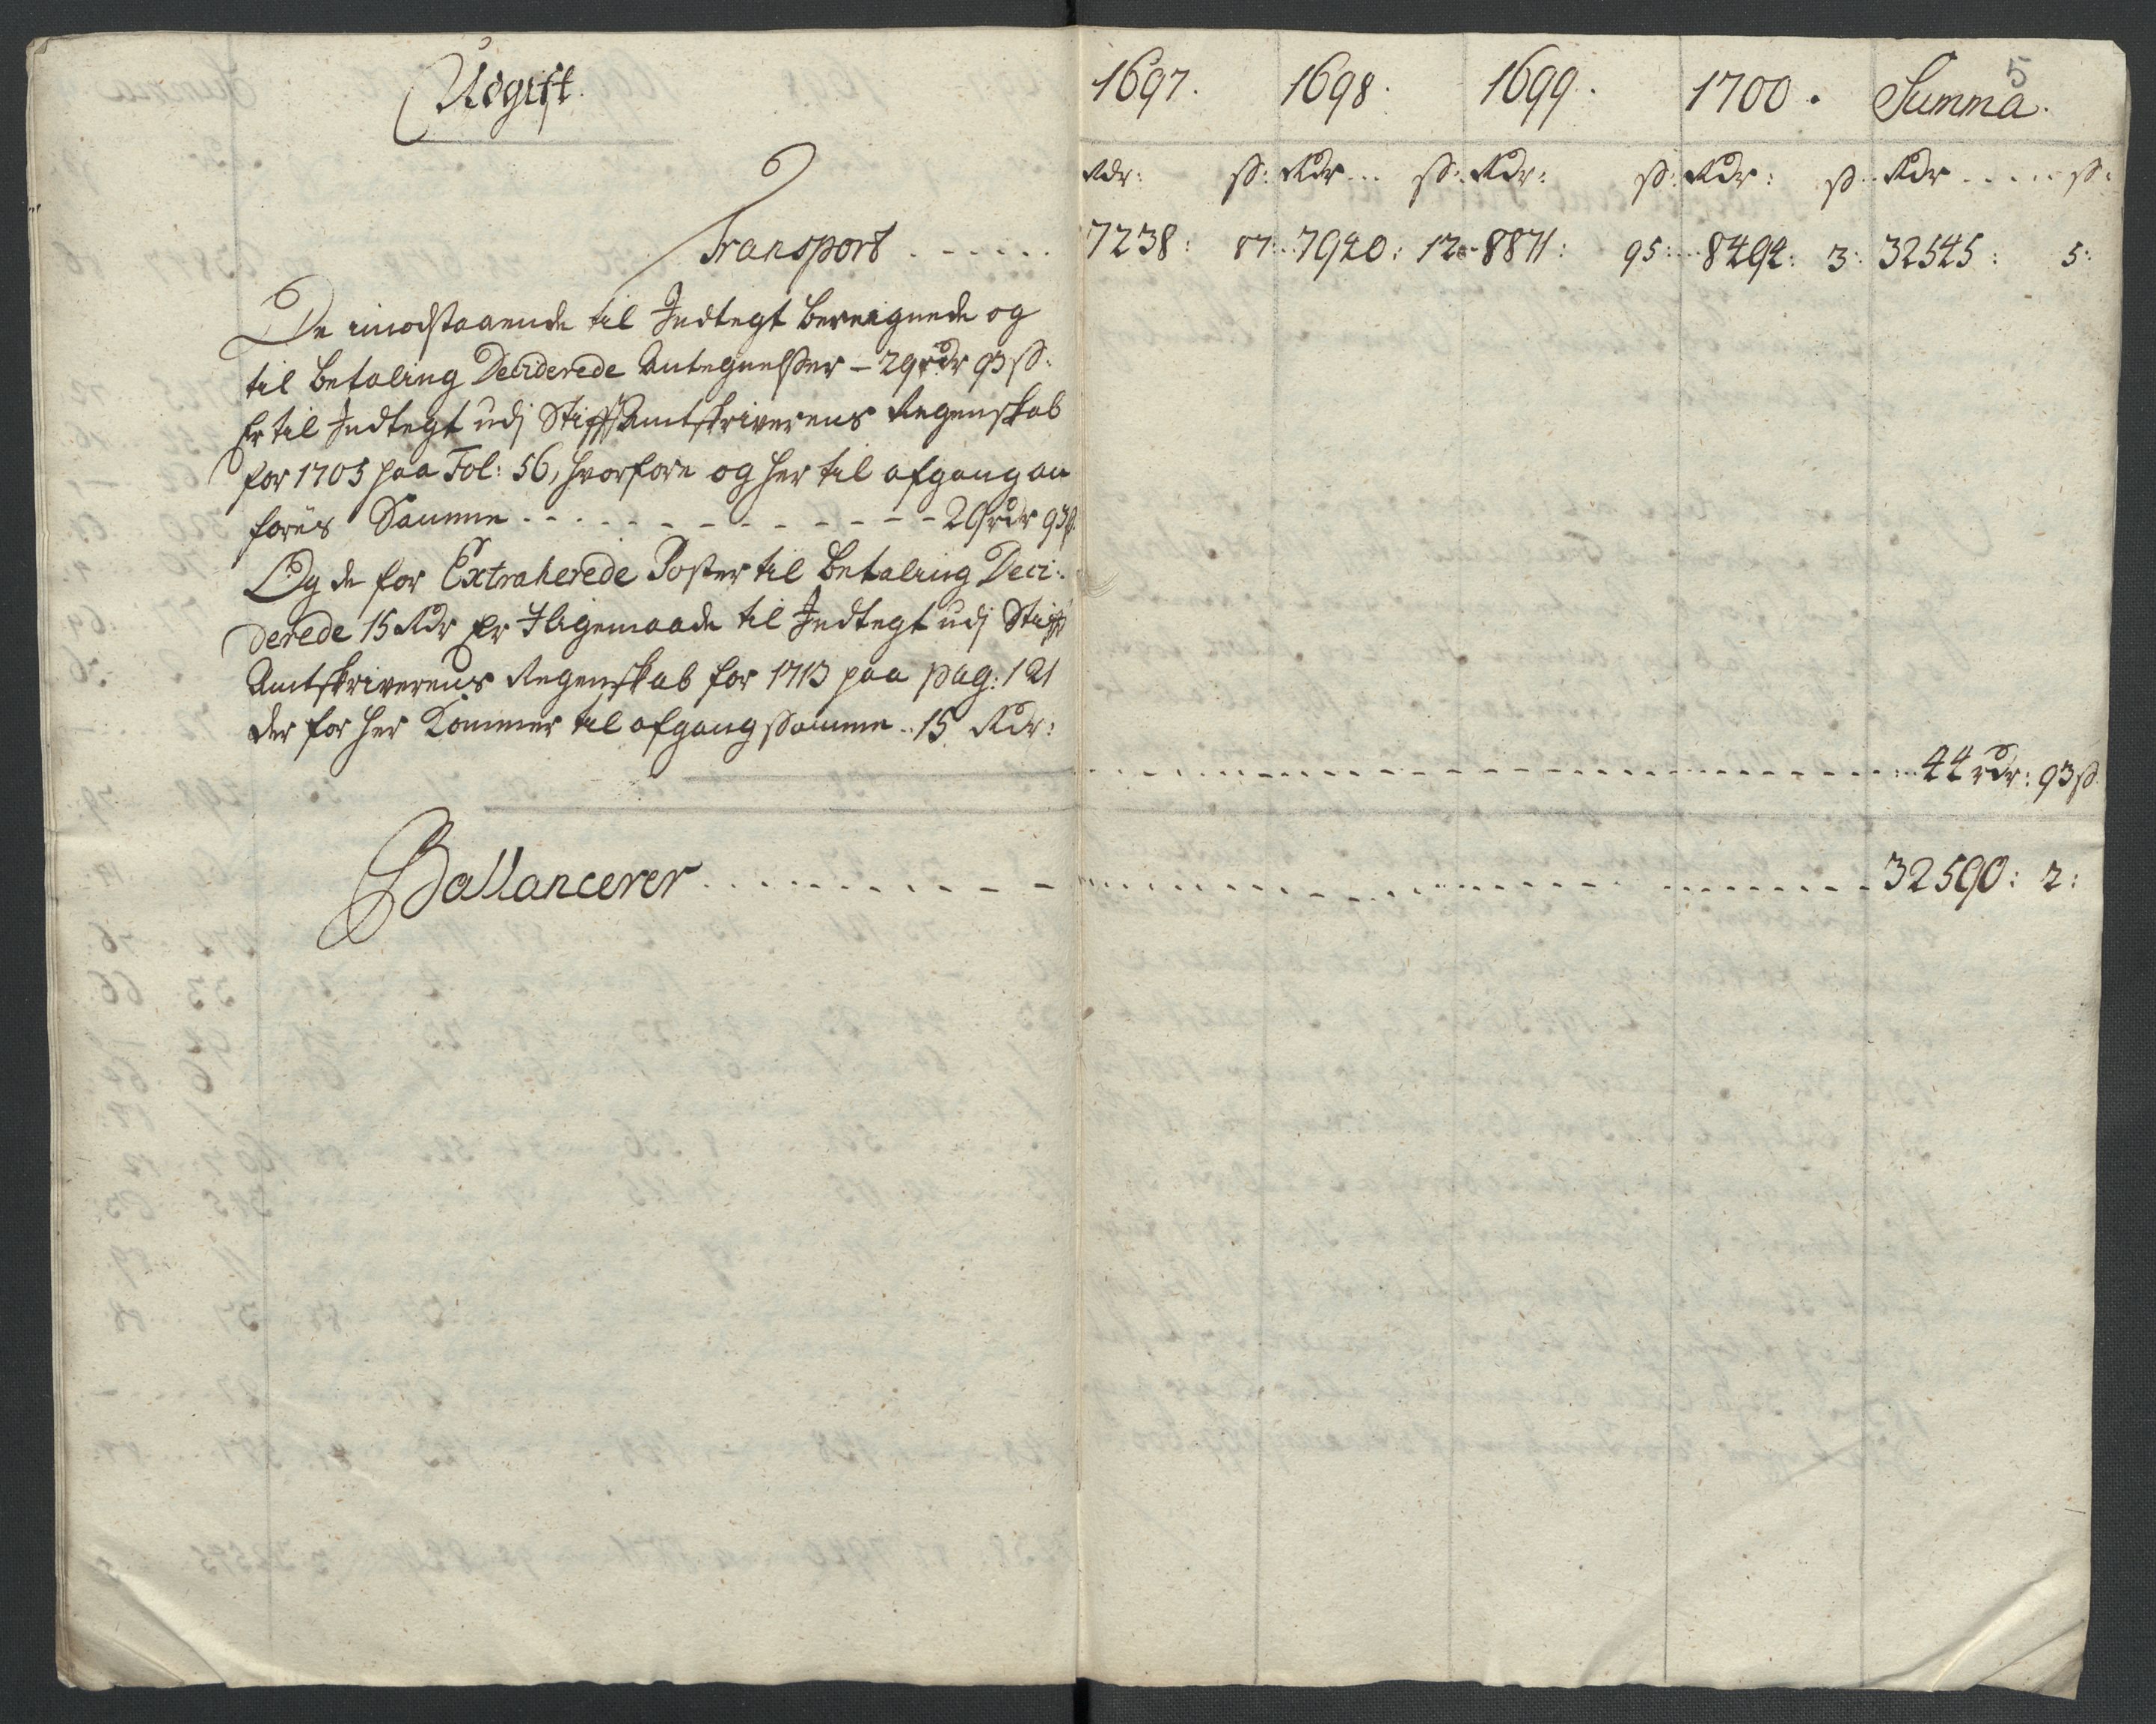 Udgift.
1697. 1698. 1699. 1700. Summa. 5
Rdr: ß: Rdr... ß: Rdr: ß: Rdr: ß.. Rdr ..... ß:
Transport ...... 7238: 87: 7940: 12 8871: 95: 8494: 3: 32545: 5:
De imodstaaende til Indtegt bereignede og
til betaling Deciderede Antegnelsser – 29 rdr 93 ß:
Er til Indtegt udj Stifftamtskriverens Regenskab
for 1705 paa Fol: 56, hvorfore og her til afgang an
føris Samme ............ 29 rdr 93 ß.
Og de for Extraherede Poster til betaling Deci:
derede 15 Rdr Er Jligemaade til Indtegt udj Stifft
Amtskriverens Regenskab for 1713 paa pag: 121
der for her Kommer til afgang samme .. 15 Rdr:
......... 44 rdr: 93 ß.
Ballancerer ......... 32590: 2: